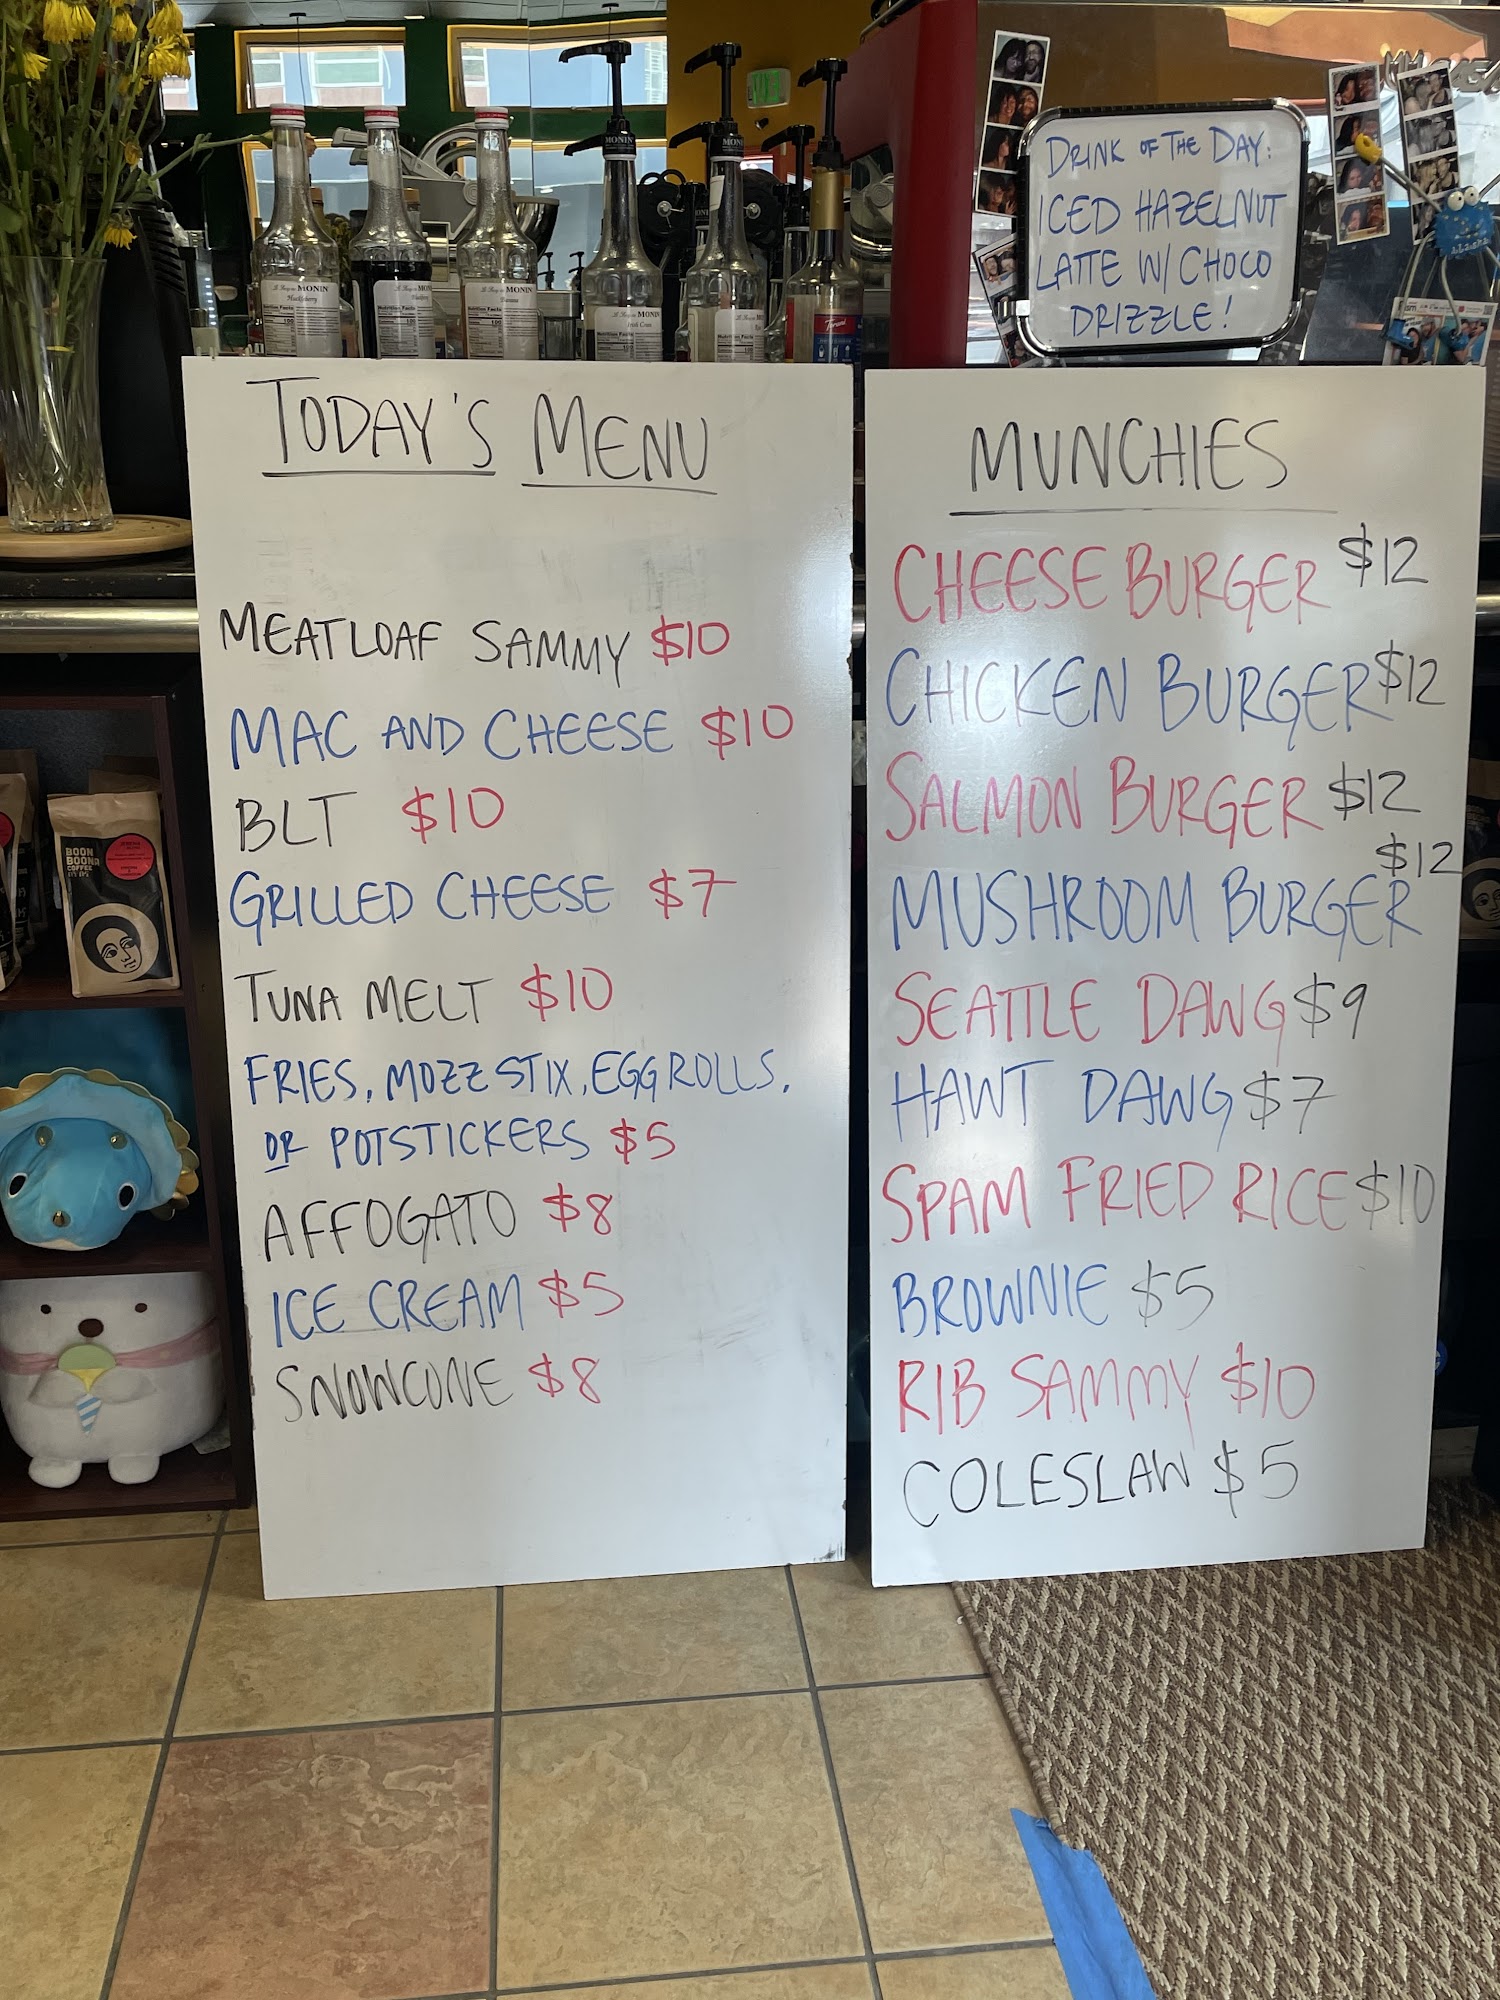 DRINK OF THE DAY:
ICED HAZELNUT
LATTE W/ CHOCO
DRIZZLE!
MONIN
MONIN
MONIN
Huckleberry
Nutrition Facts
MONIN
Nutrition Facts
MONIN
Banana
Nutrition Facts
MONIN
Nutrition Facts
MONIN
Torani
TODAY'S MENU
MEATLOAF SAMMY $10
MAC AND CHEESE $10
BLT $10
GRILLED CHEESE $7
TUNA MELT $10
FRIES, MOZZ STIX, EGG ROLLS,
OR POTSTICKERS $5
AFFOGATO $8
ICE CREAM $5
SNOWCONE $8
MUNCHIES
CHEESE BURGER $12
CHICKEN BURGER $12
SALMON BURGER $12
MUSHROOM BURGER $12
SEATTLE DAWG $9
HAWT DAWG $7
SPAM FRIED RICE $10
BROWNIE $5
RIB SAMMY $10
COLESLAW $5
BOON
BOONA
COFFEE